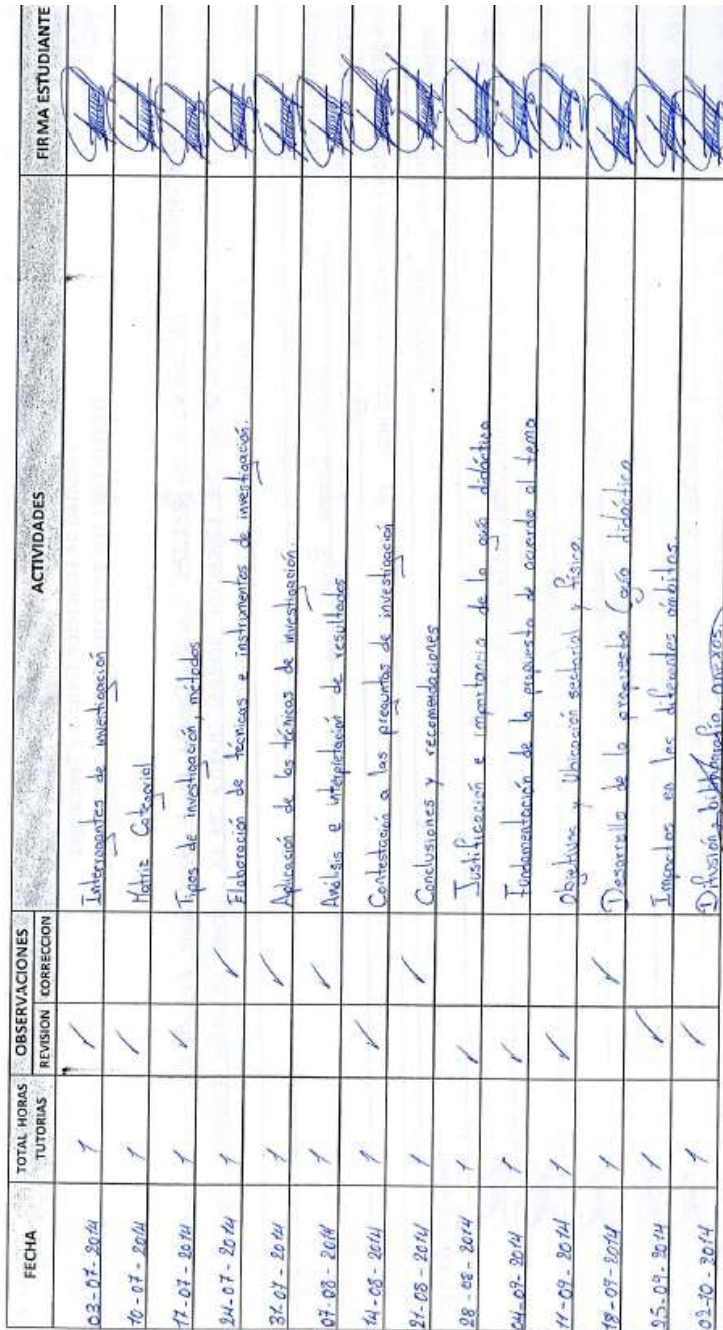 FECHA TOTAL HORAS TUTORIAS OBSERVACIONES REVISION CORRECCION ACTIVIDADES FIRMA ESTUDIANTE
03-07-2014 1 ✓ Interrogantes de investigación
10-07-2014 1 ✓ Matriz Categorial
17-07-2014 1 ✓ Tipos de investigación, métodos
24-07-2014 1 ✓ Elaboración de técnicas e instrumentos de investigación.
31-07-2014 1 ✓ Aplicación de las técnicas de investigación.
07-08-2014 1 ✓ Análisis e interpretación de resultados
14-08-2014 1 ✓ Contestación a las preguntas de investigación
21-08-2014 1 ✓ Conclusiones y recomendaciones
28-08-2014 1 ✓ Justificación e importancia de la guía didáctica
04-09-2014 1 ✓ Fundamentación de la propuesta de acuerdo al tema
11-09-2014 1 ✓ Objetivos y Ubicación sectorial y física.
18-09-2014 1 ✓ Desarrollo de la propuesta (guía didáctica
25-09-2014 1 ✓ Impactos en los diferentes ámbitos.
02-10-2014 1 ✓ Difusión, bibliografía, anexos